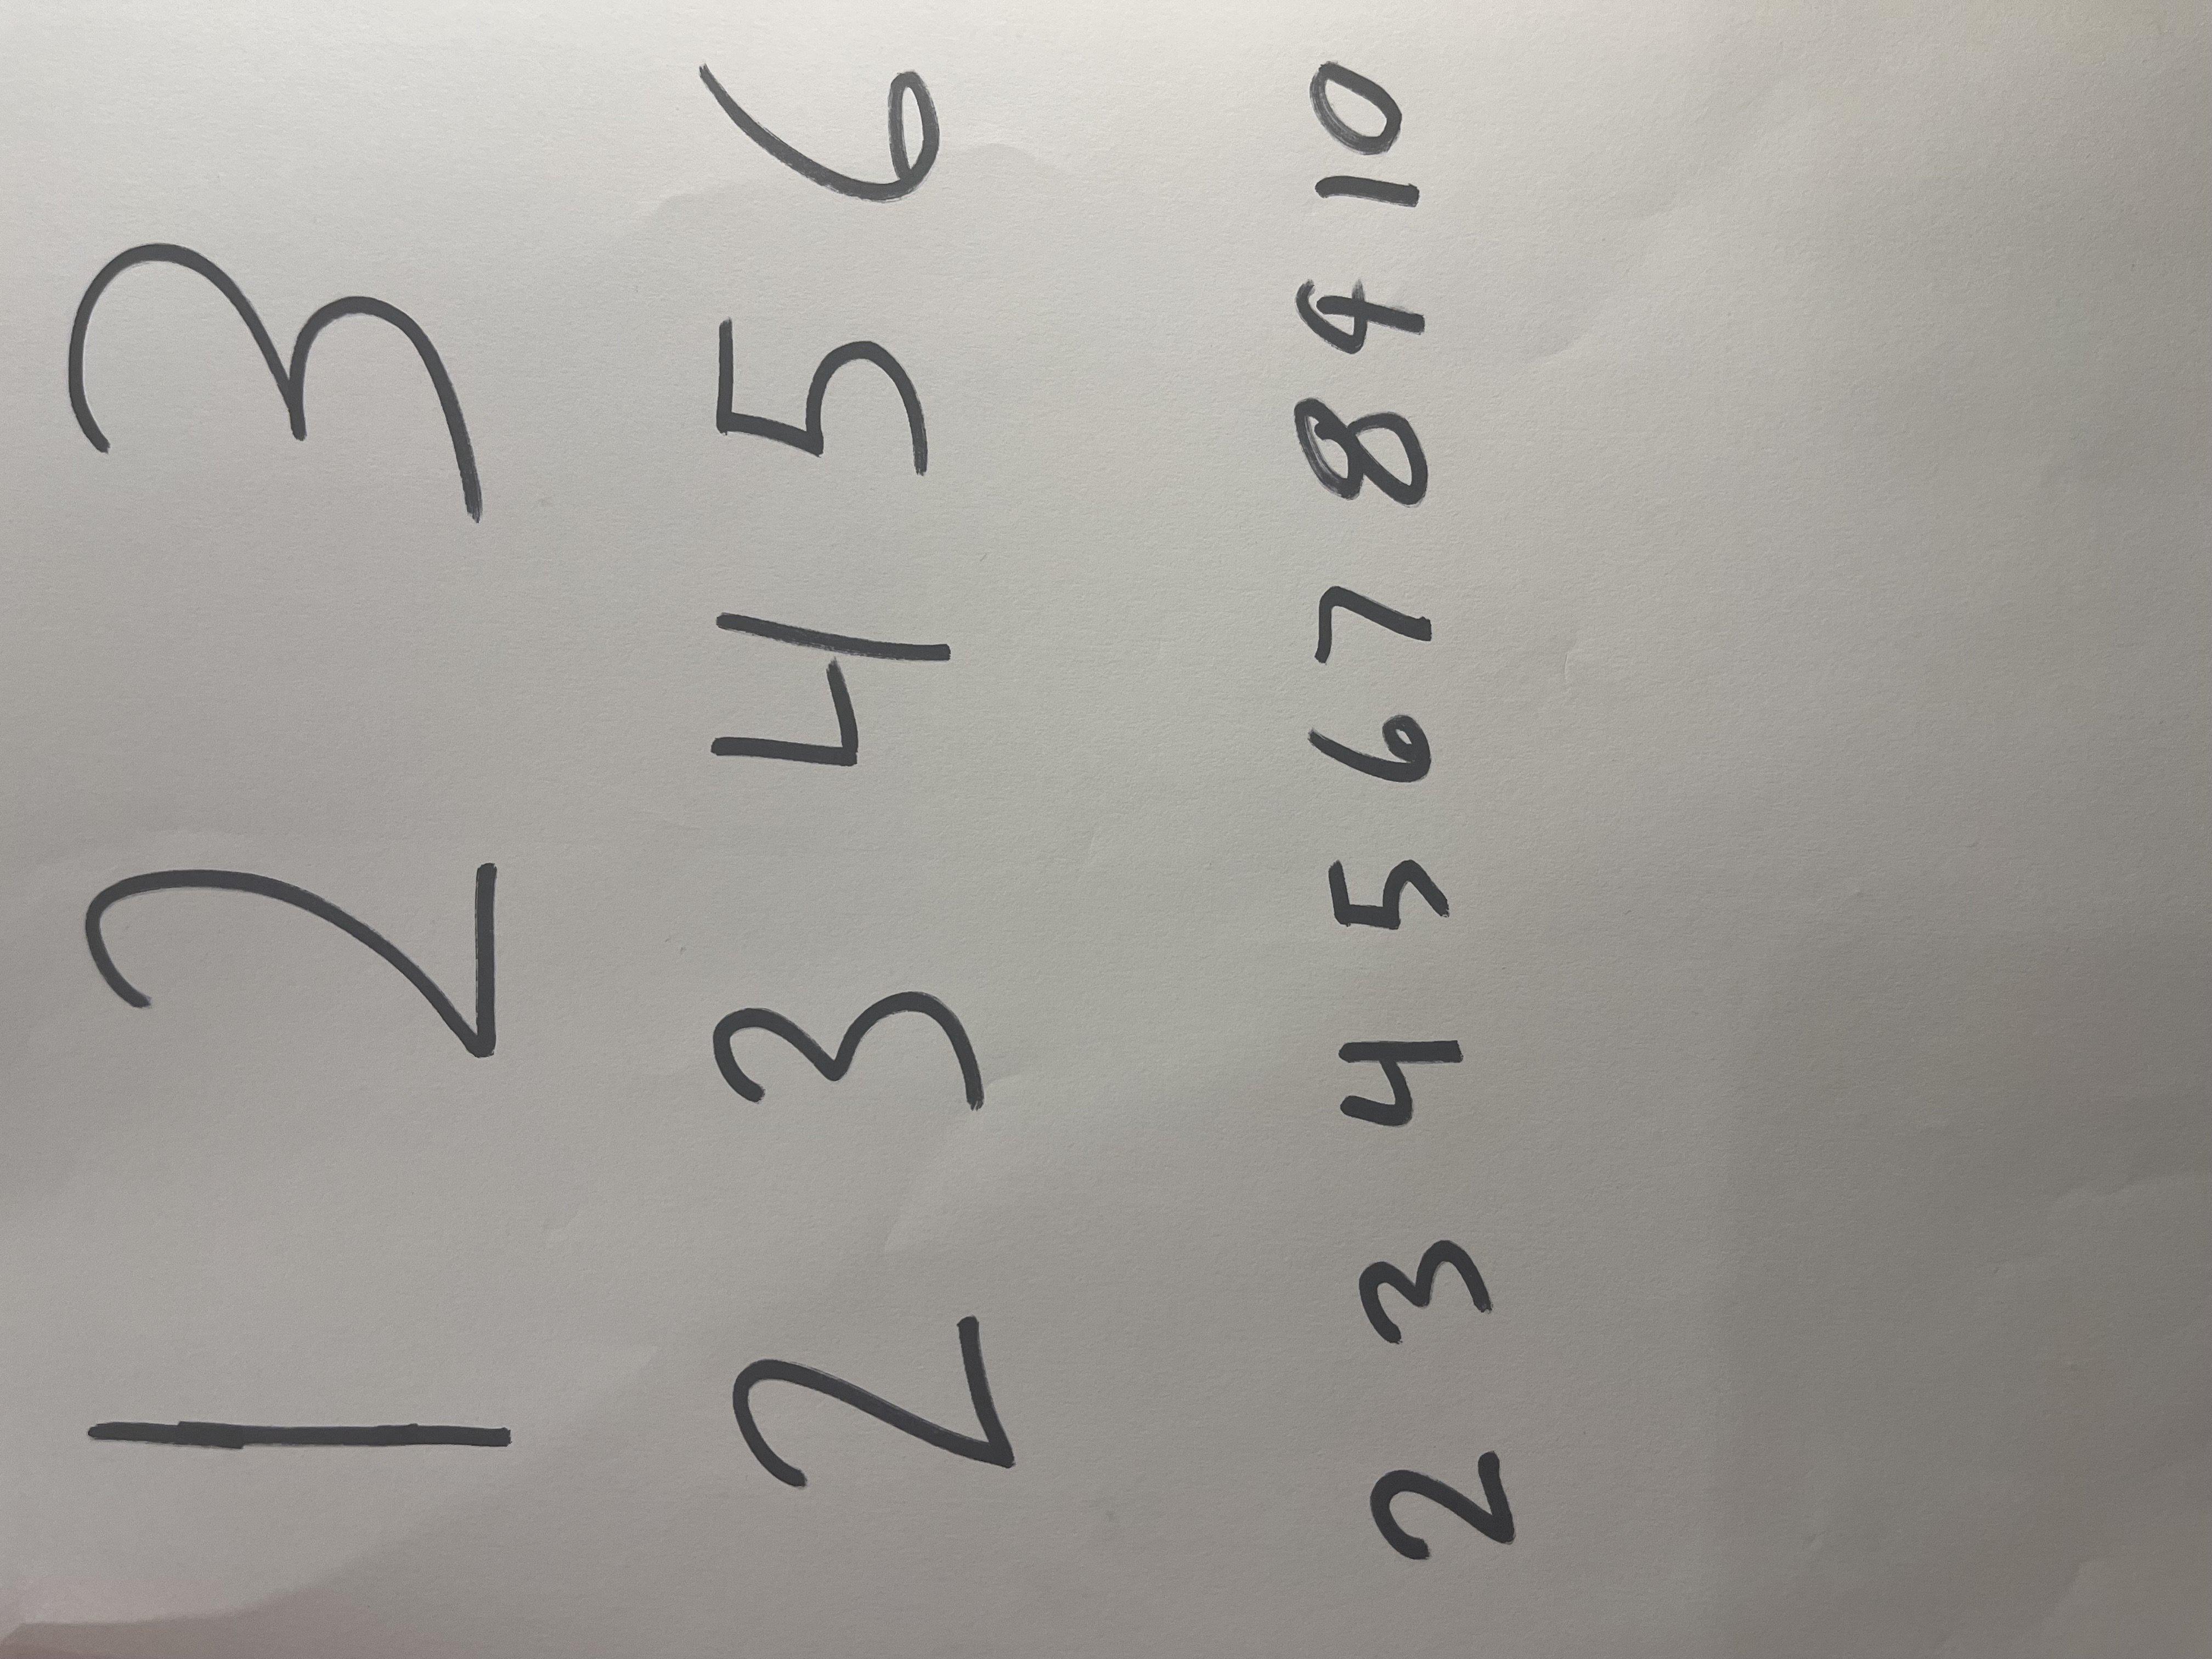 1 2 3
2 3 4 5 6
2 3 4 5 6 7 8 9 10